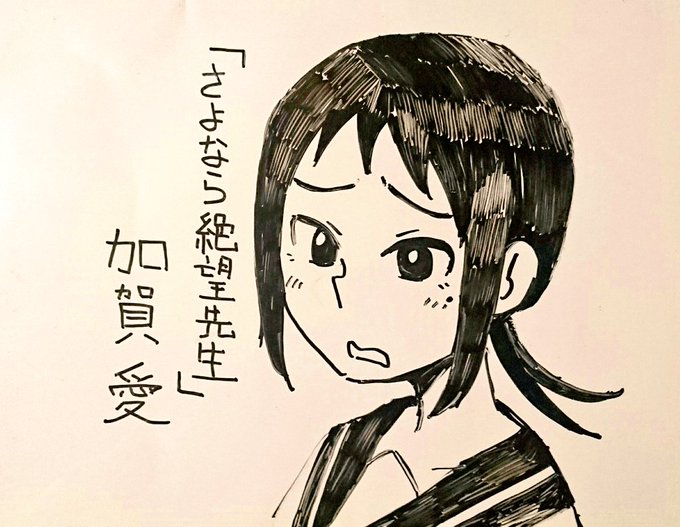 「さよなら絶望先生」
加賀愛